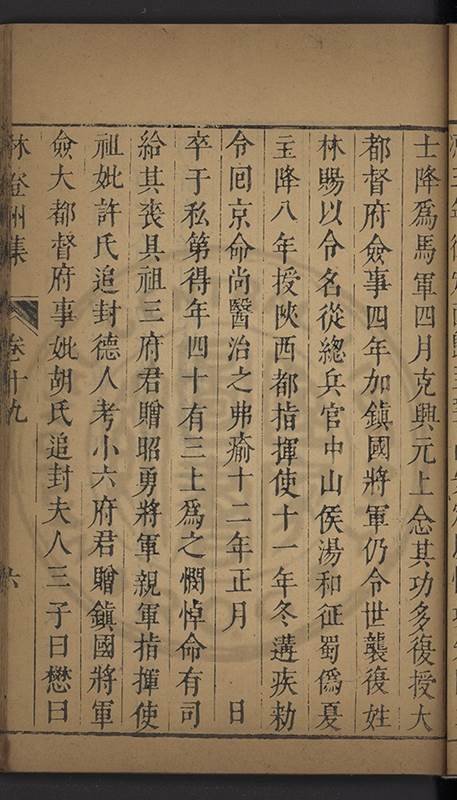 士降爲馬軍四月克興元上念其功多復授大
都督府僉事四年加鎮國將軍仍令世襲復姓
林賜以令名從總兵官中山侯湯和征蜀僞夏
主降八年授陝西都指揮使十一年冬遘疾勑
令回京命尚醫治之弗瘉十二年正月　日
卒于私第得年四十有三上爲之憫悼命有司
給其喪具祖三府君贈昭勇將軍親軍指揮使
祖妣許氏追封德人考小六府君贈鎮國將軍
僉大都督府事妣胡氏追封夫人三子曰懋曰
林登州集　卷十九　六